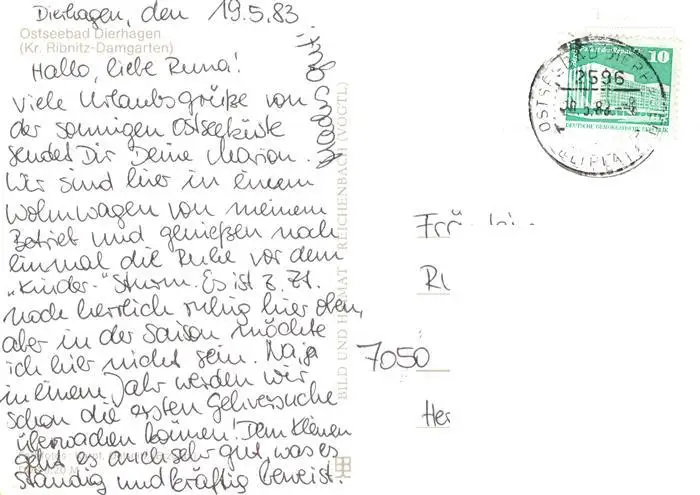 Dierhagen, den 19.5.83
Ostseebad Dierhagen
(Kr. Ribnitz-Damgarten)
Hallo, liebe Runa!
Viele Urlaubsgrüße von
der sonnigen Ostseeküste
sendet Dir Deine Marion.
Wir sind hier in einem
Wohnwagen von meinem
Betrieb und genießen noch
einmal die Ruhe vor dem
"Kinder-" Sturm. Es ist z. Zt.
noch herrlich ruhig hier oben,
aber in der Saison möchte
ich hier nicht sein. Na ja
in einem Jahr werden wir
schon die ersten Gehversuche
überwachen können! Dem Kleinen
geht es auch sehr gut, was es
ständig und kräftig beweist.
BILD UND HEIMAT REICHENBACH (VOGTL)
10
DEUTSCHE DEMOKRATISCHE REPUBLIK
OSTSEEBAD DIERH
2596
7050